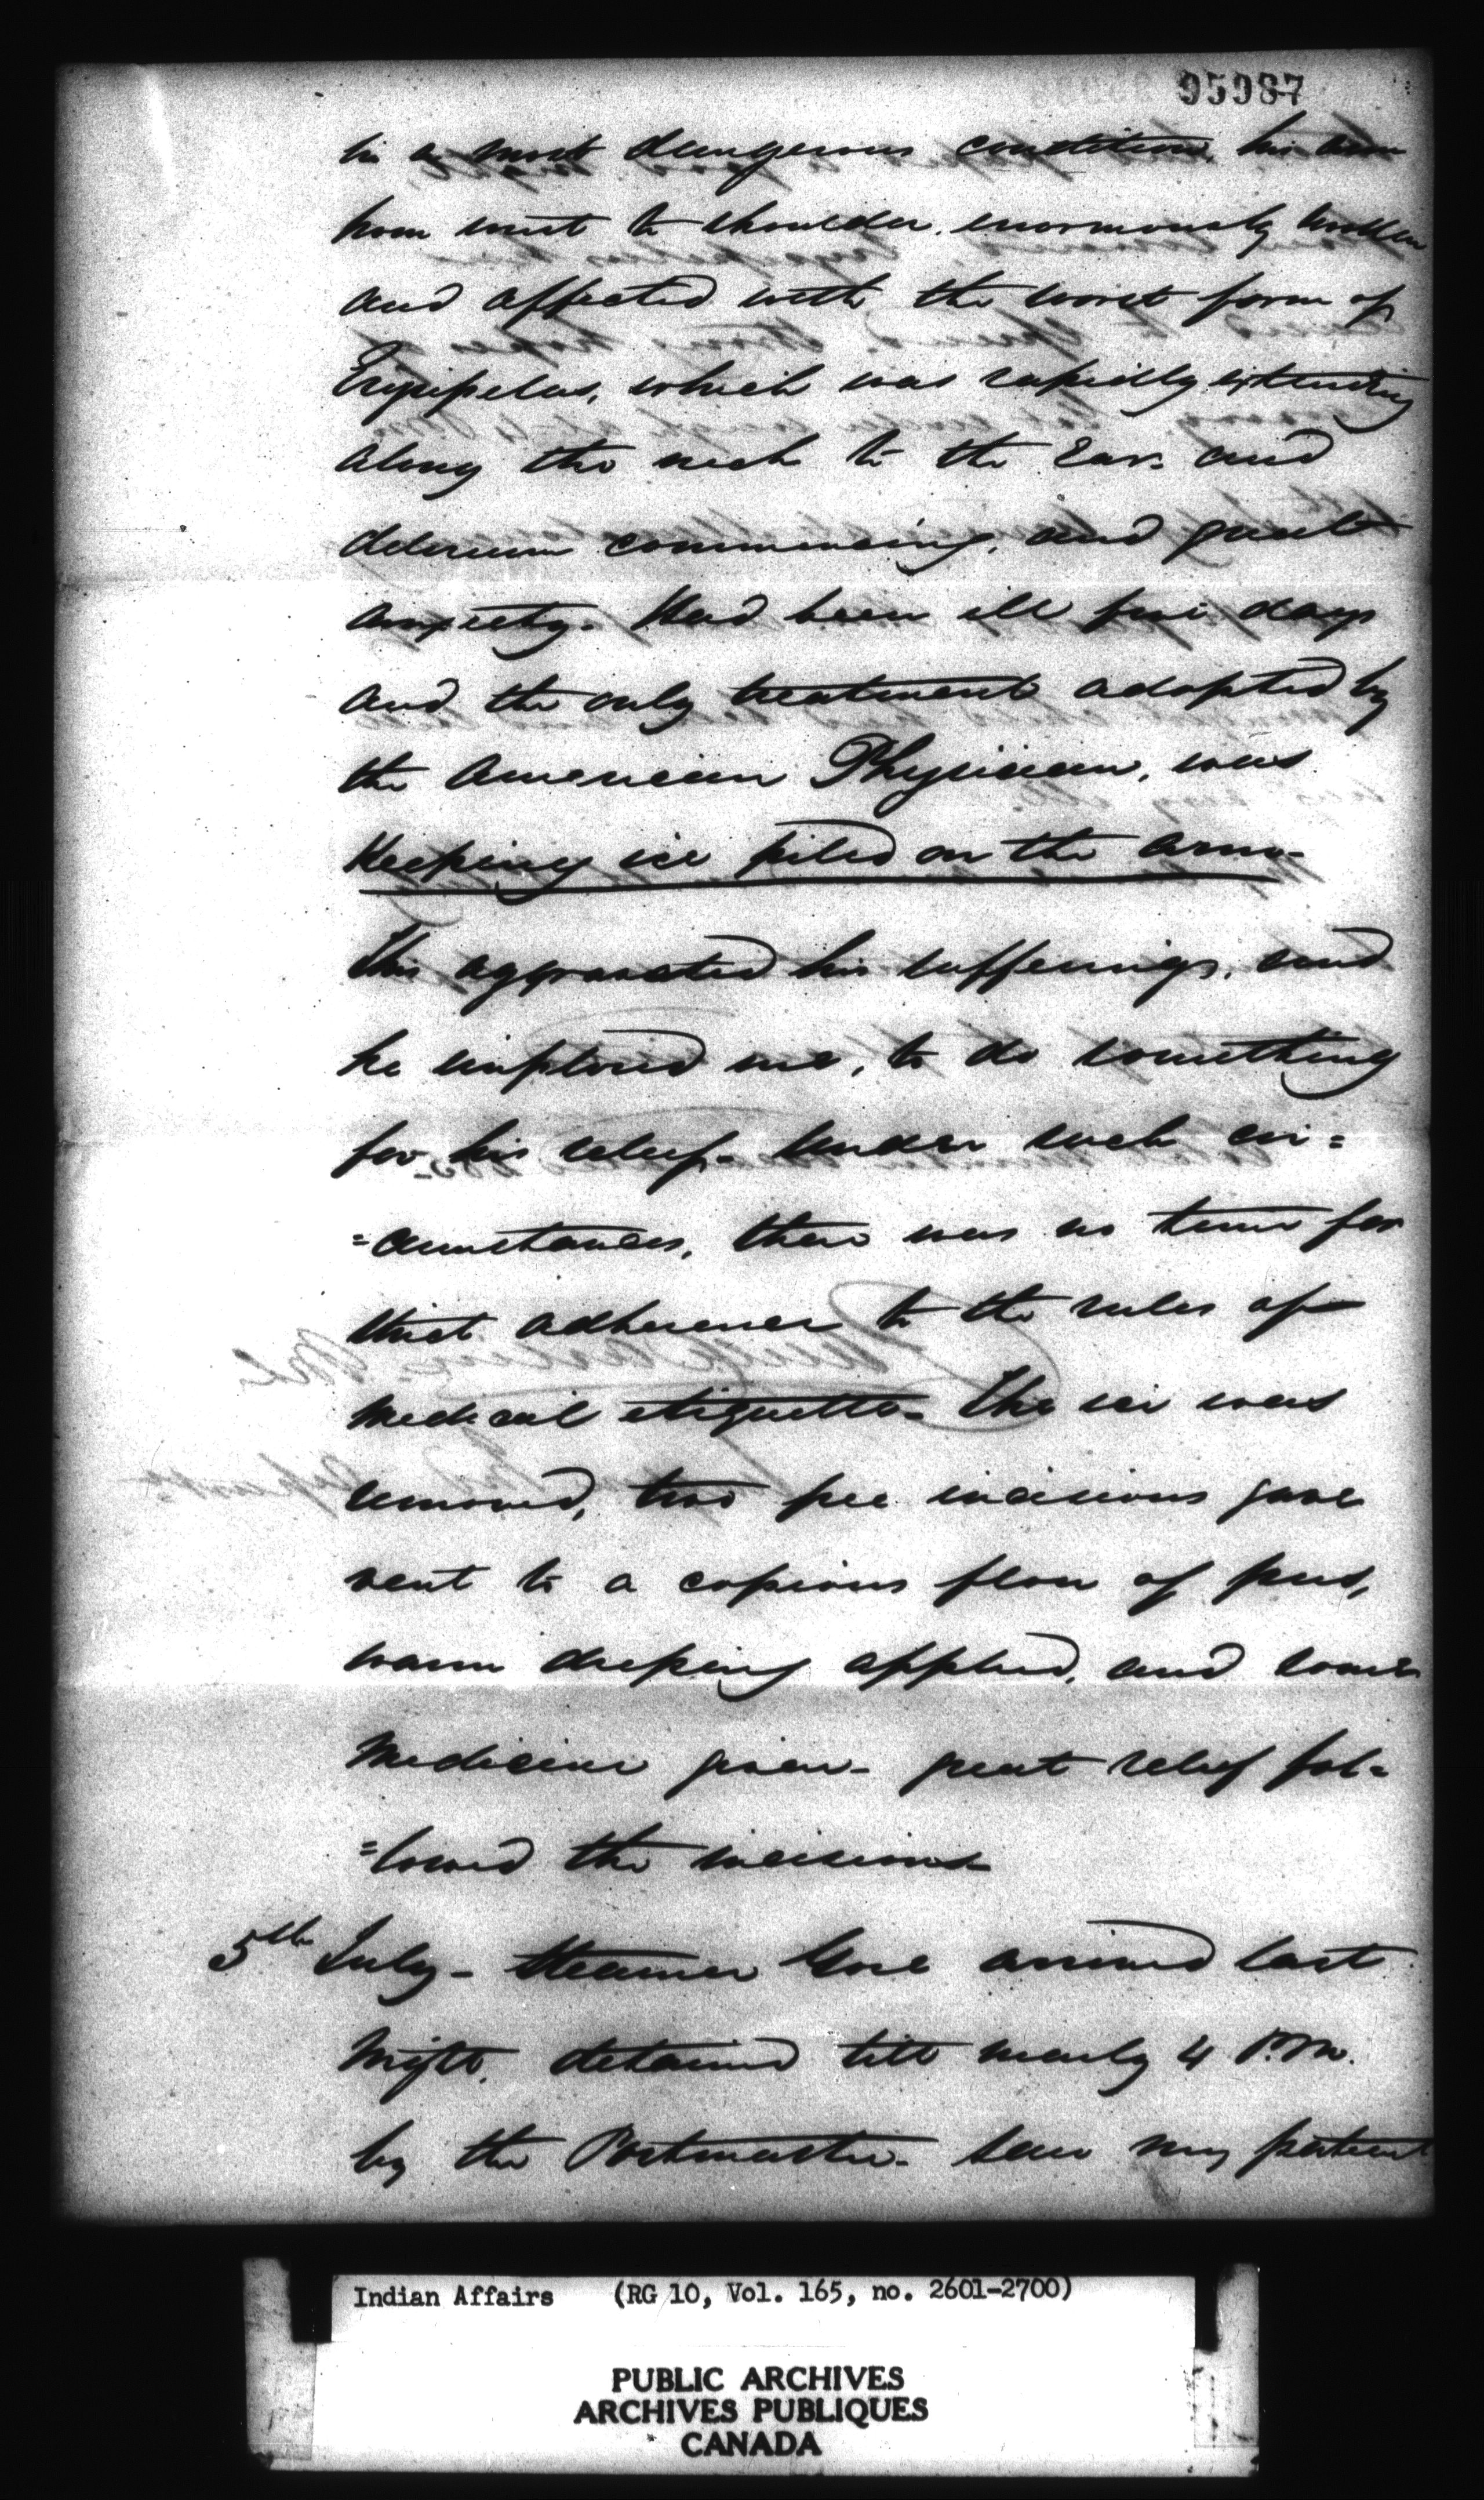 95987
in a most dangerous condition, his arm
from wrist to shoulder enormously swollen
and affected with the worst form of
Erysipelas, which was rapidly extending
along the neck to the Ear. and
delerium commencing, and great
anxiety. Had been ill five days
and the only treatment adopted by
the American Physician, was
Keeping ice piled on the arm.
This aggravated his sufferings, and
he implored me, to do something
for his relief. Under such cir=
=cumstances, there was no time for
strict adherence to the rules of
medical etiquette. The ice was
removed, two free incisions gave
vent to a copious flow of pus,
warm dressing applied, and some
medicine given. great relief fol=
=lowed the incisions.
5th July. Steamer Gore arrived last
night. detained till nearly 4 P.M.
by the Postmaster. Saw my patient
Indian Affairs (RG 10, Vol. 165, no. 2601-2700)
PUBLIC ARCHIVES
ARCHIVES PUBLIQUES
CANADA